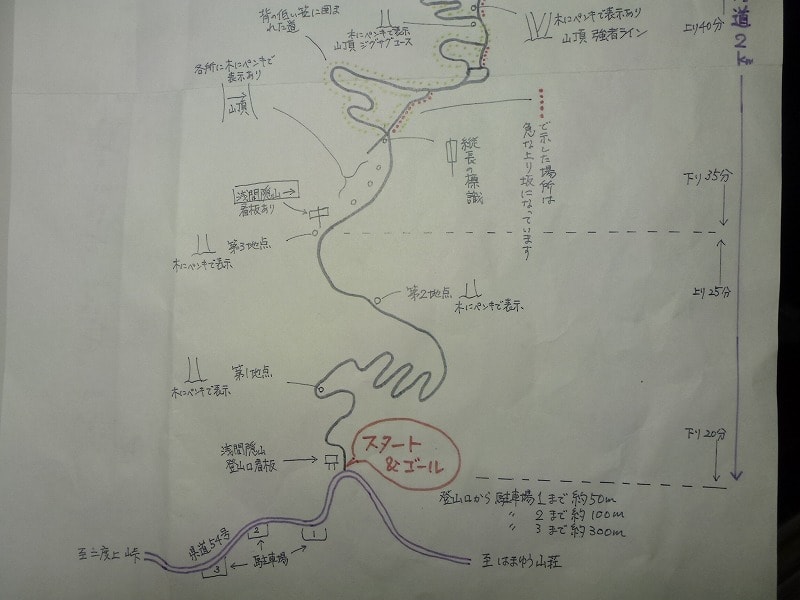 背の低い笹に囲ま
れた道
木にペンキで表示
山頂 ジグザグコース
木にペンキで表示あり
山頂 強者ライン
上り40分
各所に木にペンキで
表示あり
→
山頂
縦長の標識
で示した場所は
急な上り坂になっています
下り35分
浅間隠山→
看板あり
第3地点
木にペンキで表示
上り25分
第2地点
木にペンキで表示
第1地点
木にペンキで表示
下り20分
浅間隠山
登山口看板
スタート
&ゴール
登山口から 駐車場1まで約50m
〃 2まで約100m
〃 3まで約300m
県道54号
1
2
3
駐車場
至二度上峠
至はまゆう山荘